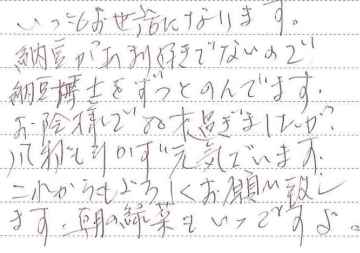 いつもお世話になります。
納豆があまり好きでないので
納豆博士をずっとのんでます。
お陰様で 末過ぎましたが?
風邪も引かず元気でいます。
これからもよろしくお願い致し
ます。朝の緑葉もいつてますよ。